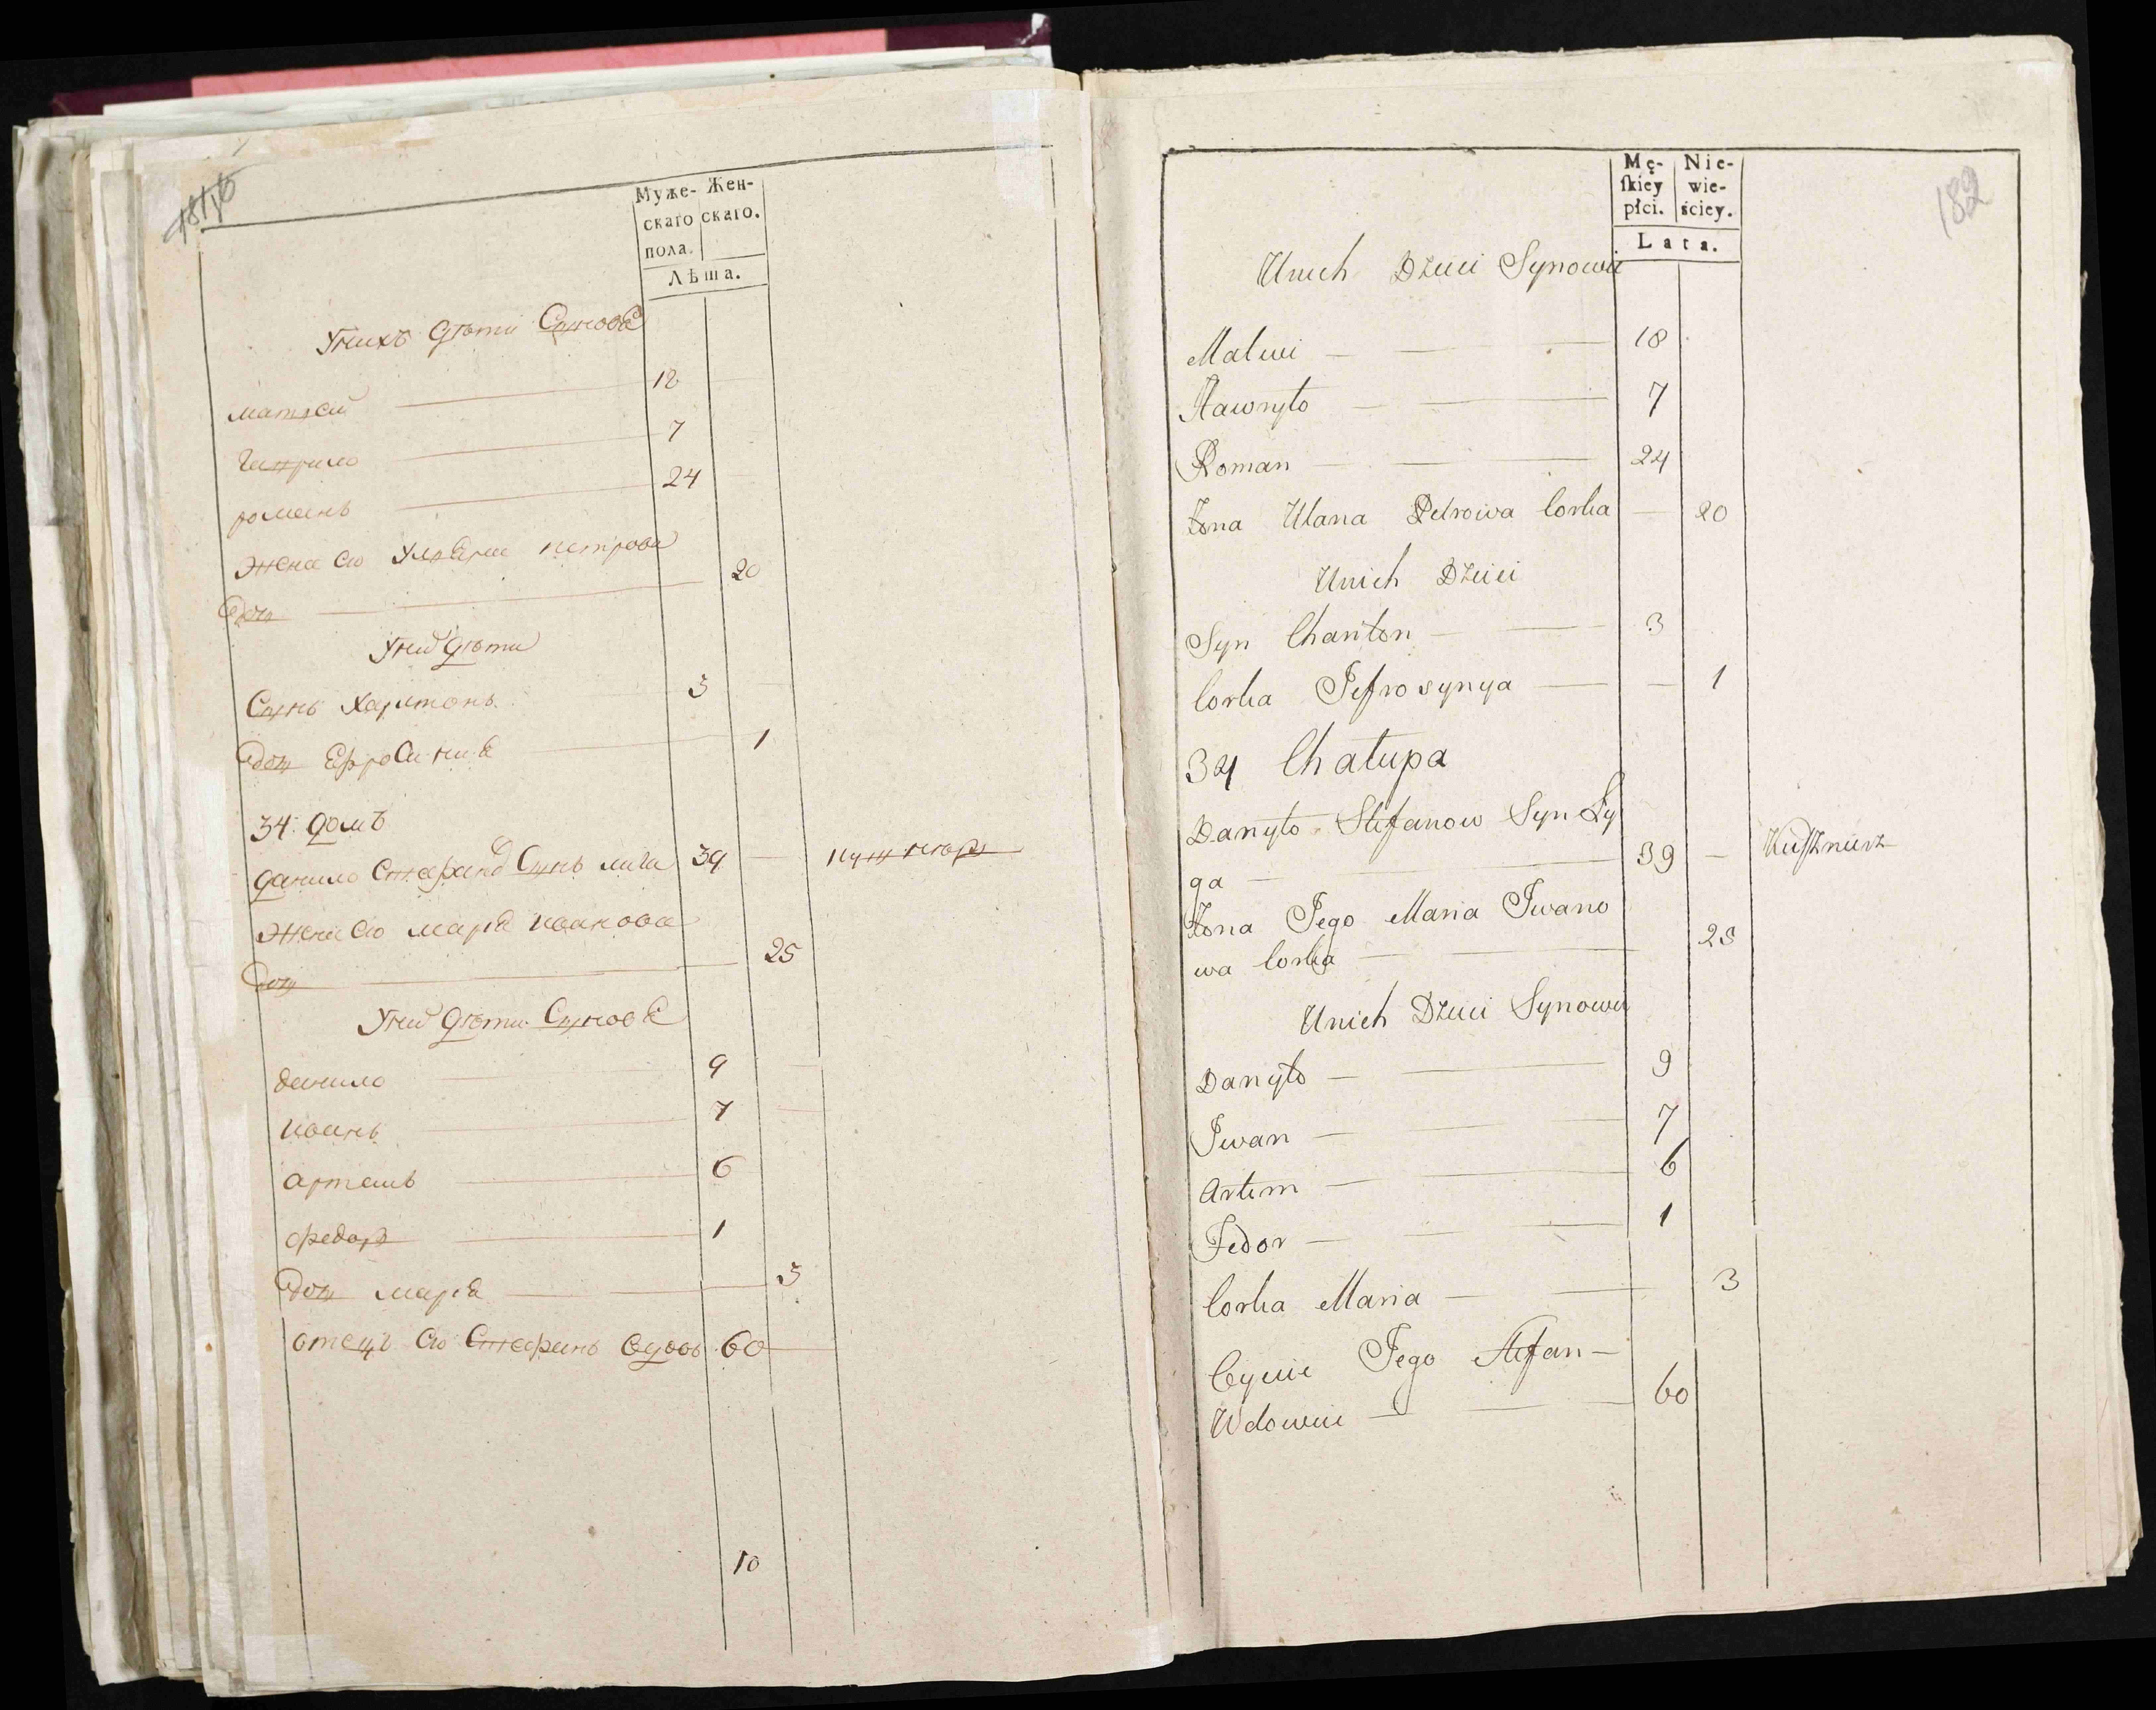 Муже- Жен-
скаго скаго.
пола.
Лѣта.
Унихъ дѣти Синовя
матвей 18
Гаврило 7
романъ 24
жена его Уляна петрова
доч 20
У ний дѣти
Синъ Харитонъ 3
доч Ефросиния 1
34: домъ
данило Стефановъ Синъ лига 39 — кушнюръ
жена его мария иванова
доч 25
У ний дѣти Синовя
данило 9
иванъ 7
артемъ 6
федоръ 1
доч мария 3
отецъ его Стефанъ вдовъ 60
10
182
Mę- Nie-
ſkiey wie-
płci. ściey.
Lata.
Unich Dzieci Synowie
Matwi 18
Hawryło 7
Roman 24
Żona Ulana Petrowa Corka — 20
Unich Dzieci
Syn Chariton 3
Corka Jefrosynya — 1
34 Chałupa
Danyło Stefanow Syn Ły
ga 39 — Kuſznierz
Żona Jego Maria Iwano
wa Corka 25
Unich Dzieci Synowie
Danyło 9
Iwan 7
Artem 6
Fedor 1
Corka Maria 3
Oyciec Jego Stefan —
Wdowiec 60